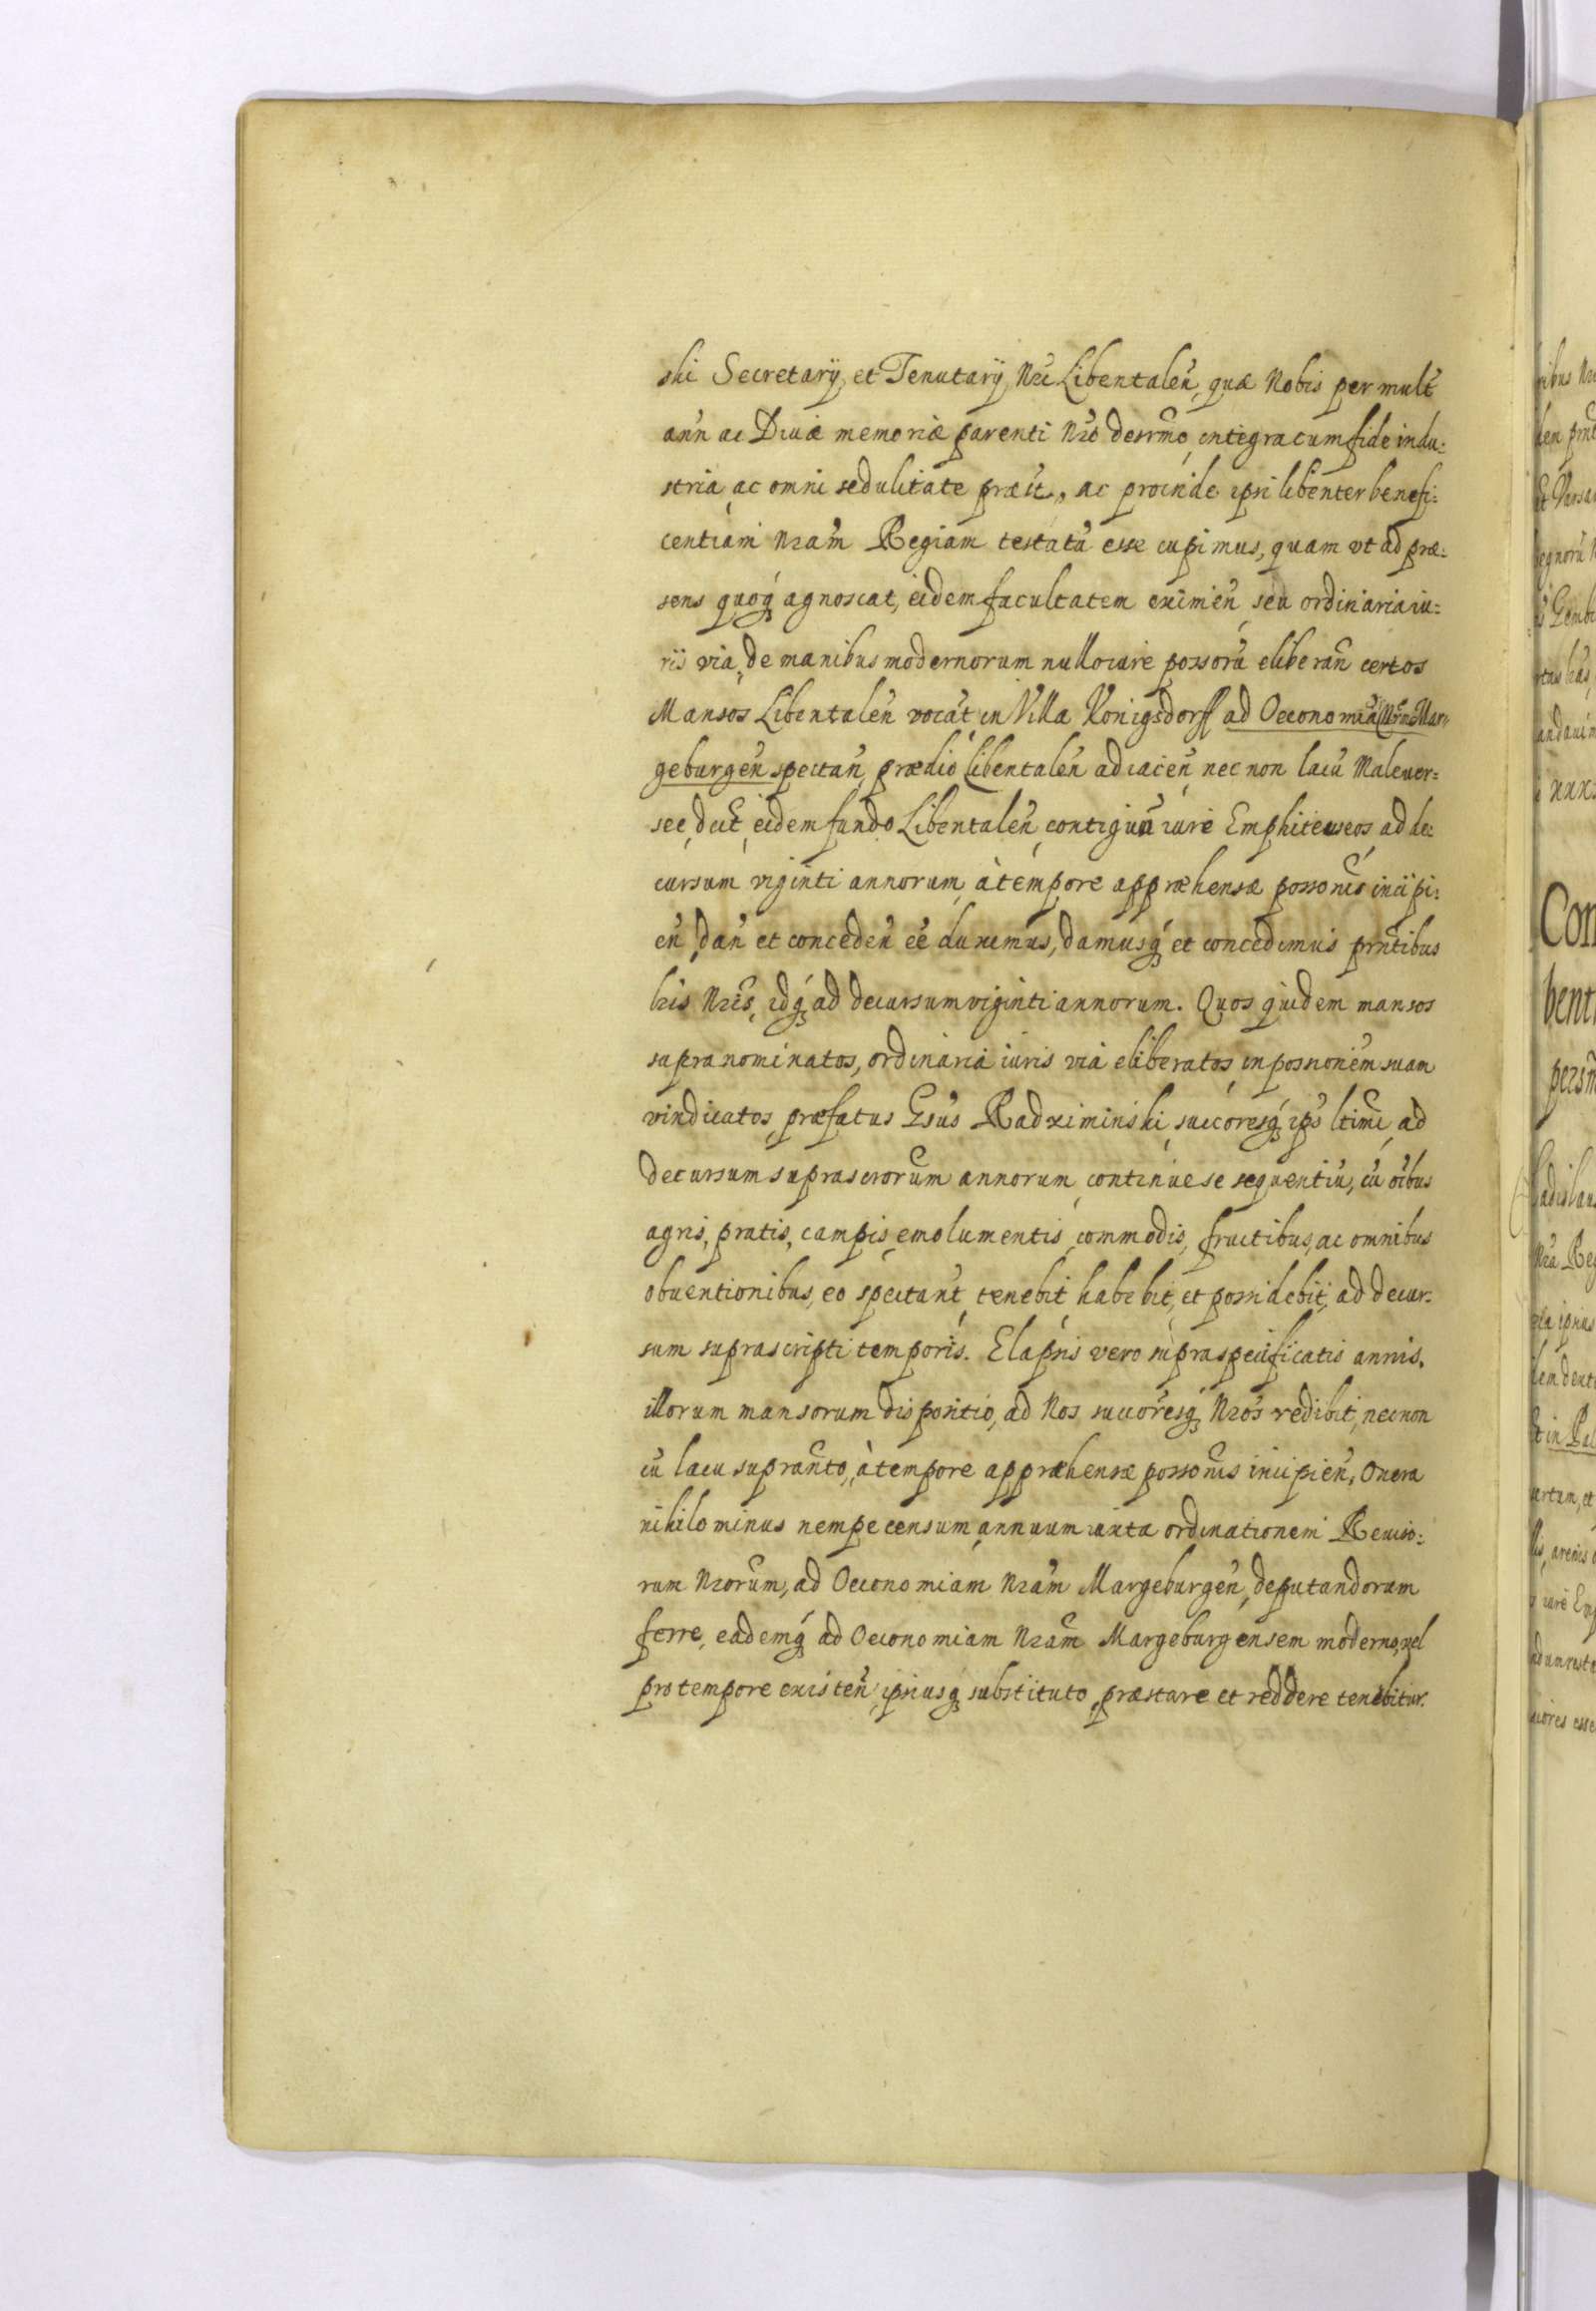 ski Secretarij, et Tenutarij Nri Libentalen̄, quæ Nobis per mult
ann̄ ac Diuæ memoriæ parenti Nro desrmo, integra cum fide indu:
stria, ac omni sedulitate præst., ac proinde ipsi libenter benefi:
centiam Nram̄ Regiam testatū esse cupimus, quam vt ad præ:
sens quoq́ agnoscat, eidem facultatem eximen̄, seu ordinaria iu:
ris via, de manibus modernorum nullo iure possorū eliberan̄ certos
Mansos Libentalen̄ vocat̄ in Villa Konigsdorff ad Oeconomiam Mar:
geburgen̄ spectan̄, prædio Libentalen̄ adiacen̄, nec non lacū Maleuer:
see, dict̄, eidem fundo Libentalen̄, contiguū iure Emphiteuseos, ad de:
cursum viginti annorum, à tempore appræhensæ possonis incipi:
en̄, dan̄ et conceden̄ eē duximus, damusq́ et concedimus prntibus
lris Nris, idq́ ad decursum viginti annorum. Quos quidem mansos
supranominatos, ordinaria iuris via eliberatos, in possnonem suam
vindicatos, præfatus Gsus Radziminski, succoresq́ ips ltimi, ad
decursum suprascrorum annorum, continue se sequentiū, cū oībus
agris, pratis, campis, emolumentis, commodis, fructibus, ac omnibus
obuentionibus, eo spectant̄, tenebit, habebit, et possidebit, ad decur:
sum suprascripti temporis. Elapsis vero supraspecificatis annis,
illorum mansorum dispositio, ad Nos, succoresq́ Nros redibit, necnon
cū lacu supranto, à tempore appræhensæ possonis incipien̄, Onera
nihilominus nempe censum, annuum iuxta ordinationem Reuiso:
rum Nrorum, ad Oeconomiam Nram Margeburgen̄, deputandorum
ferre, eademq́ ad Oeconomiam Nram Margeburgensem moderno, vel
pro tempore existen̄, ipsiusq́ substituto, præstare et reddere tenebitur.